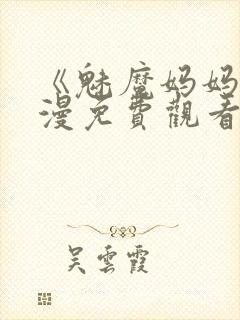 《魅魔妈妈
漫免費觀看
吴雲霞